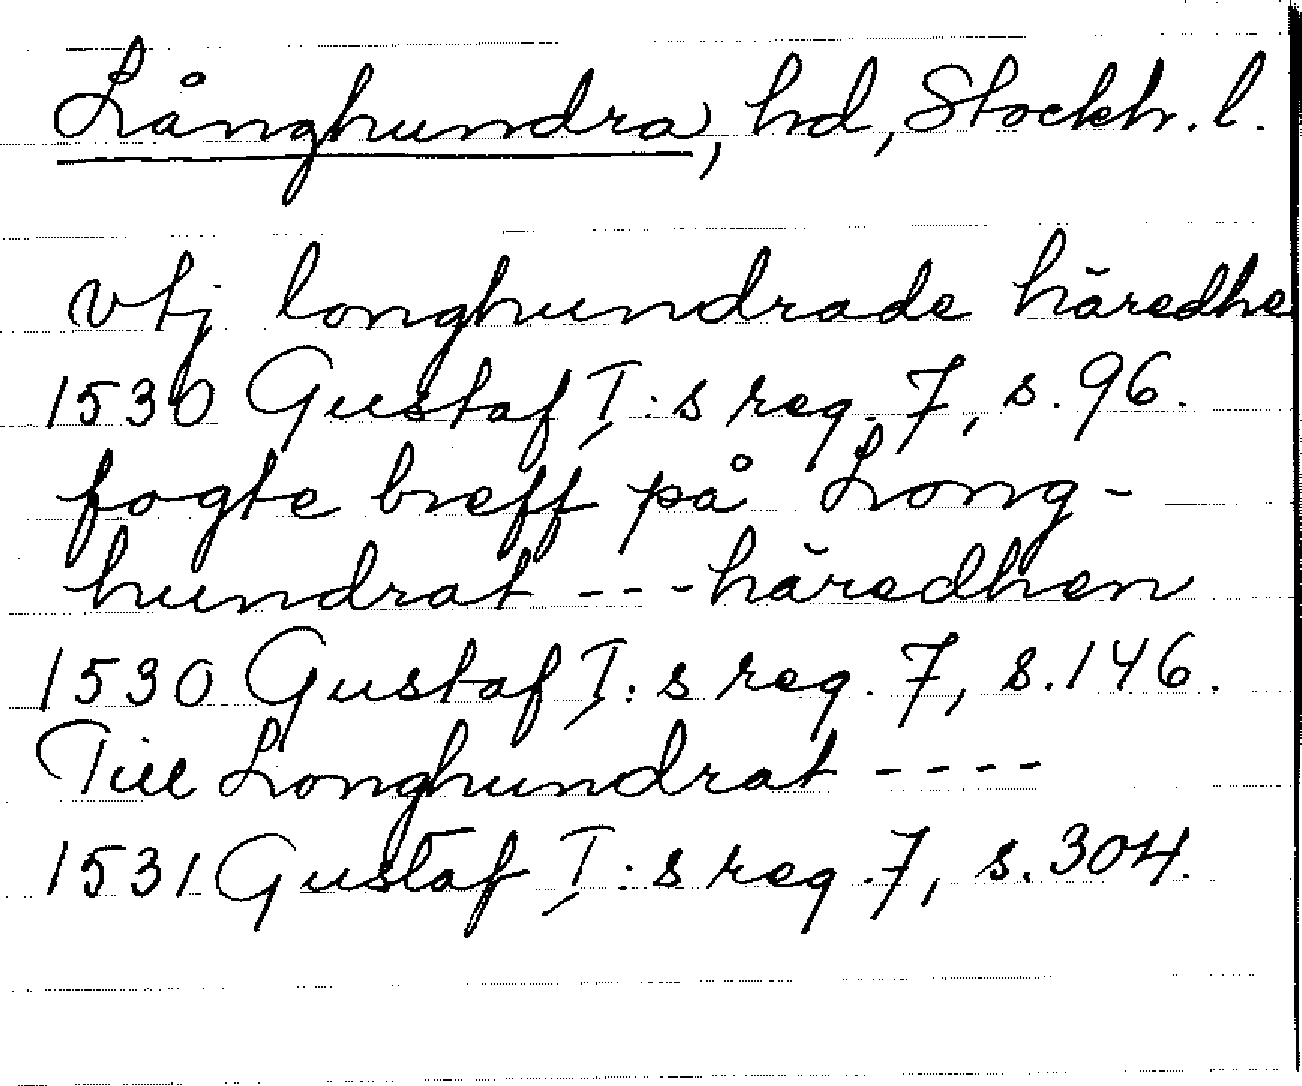 Långhundra, hd, Stockh. l.
vtj longhundrade häredhe
1530 Gustaf I:s reg. 7, s. 96.
fogte breff på Long-
hundrat --- häredhen
1530 Gustaf I:s reg. 7, s. 146.
Till Longhundrat ----
1531 Gustaf I:s reg. 7, s. 304.